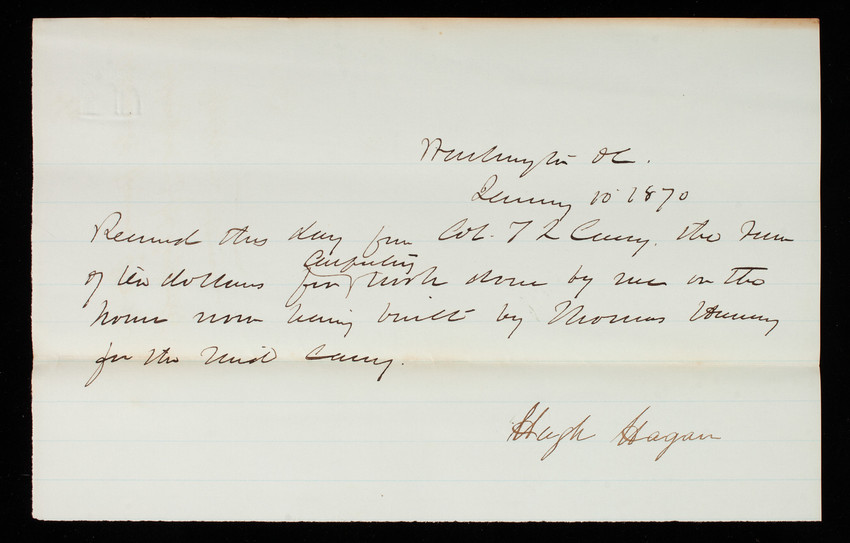 Washington DC.
January 10 1870
Received this day from Col. T L Casey. the sum
of ten dollars for carpentry work done by me on the
house now being built by Thomas
for the said Casey.
Hugh Hagan